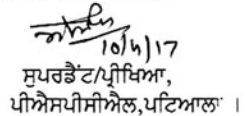 10/4/17
ਸੁਪਰਡੈਂਟ/ਪ੍ਰੀਖਿਆ,
ਪੀਐਸਪੀਸੀਐਲ,ਪਟਿਆਲਾ ।